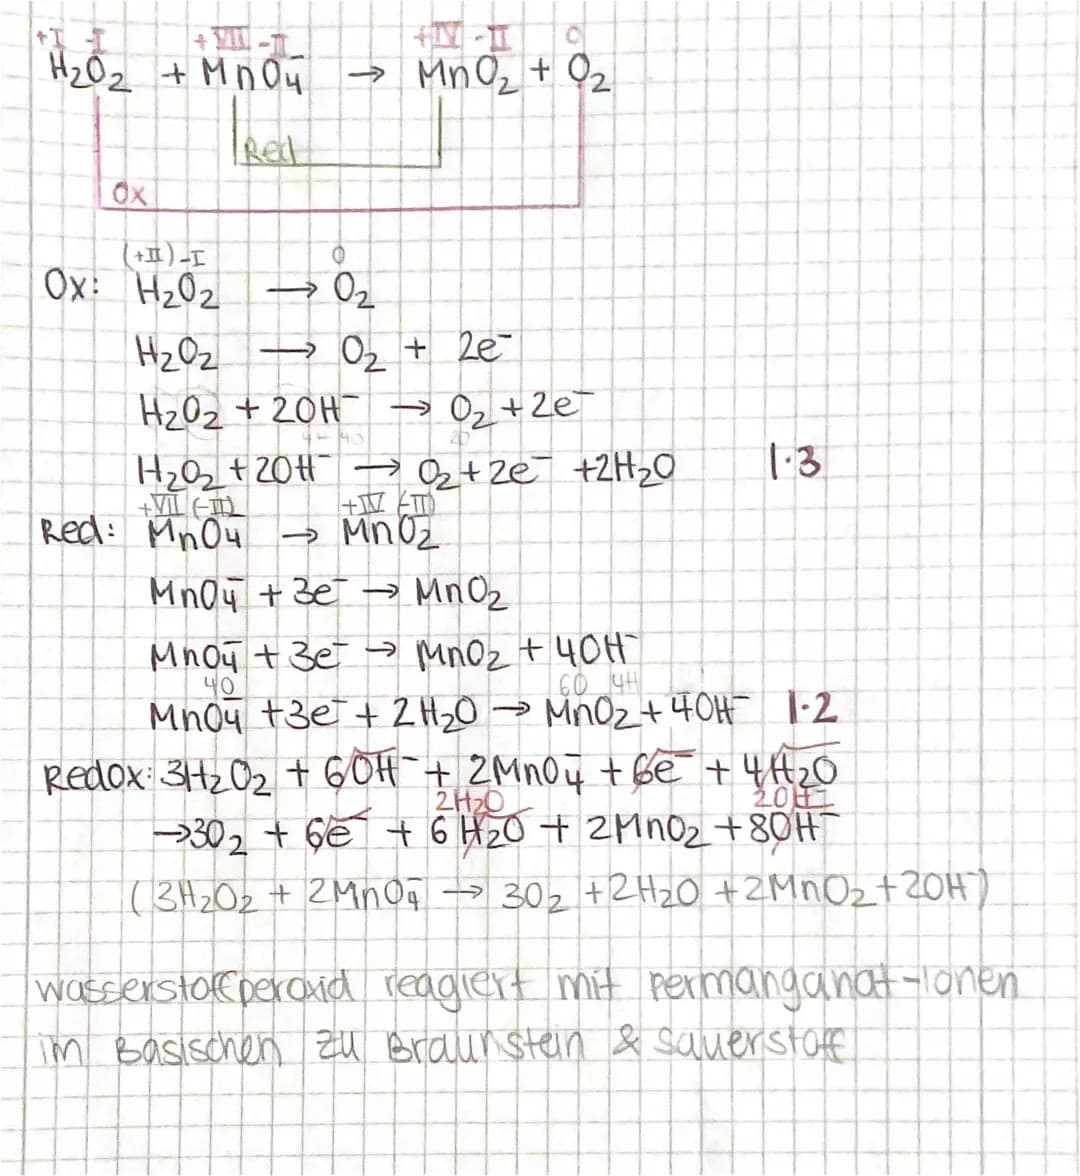 +I -I +VII -II +IV -II 0
H₂O₂ + MnO₄⁻ → MnO₂ + O₂
Red
Ox
(+II) -I 0
Ox: H₂O₂ → O₂
H₂O₂ → O₂ + 2e⁻
H₂O₂ + 2OH⁻ → O₂ + 2e⁻
H₂O₂ + 2OH⁻ → O₂ + 2e⁻ + 2H₂O |·3
+VII (-II) +IV (-II)
Red: MnO₄ → MnO₂
MnO₄⁻ + 3e⁻ → MnO₂
MnO₄⁻ + 3e⁻ → MnO₂ + 4OH⁻
4O 6O 4H
MnO₄⁻ + 3e⁻ + 2H₂O → MnO₂ + 4OH⁻ |·2
Redox: 3H₂O₂ + 6OH⁻ + 2MnO₄⁻ + 6e⁻ + 4H₂O
2H₂O 2OH⁻
→ 3O₂ + 6e⁻ + 6H₂O + 2MnO₂ + 8OH⁻
(3H₂O₂ + 2MnO₄⁻ → 3O₂ + 2H₂O + 2MnO₂ + 2OH⁻)
Wasserstoffperoxid reagiert mit Permanganat-Ionen
im Basischen zu Braunstein & Sauerstoff